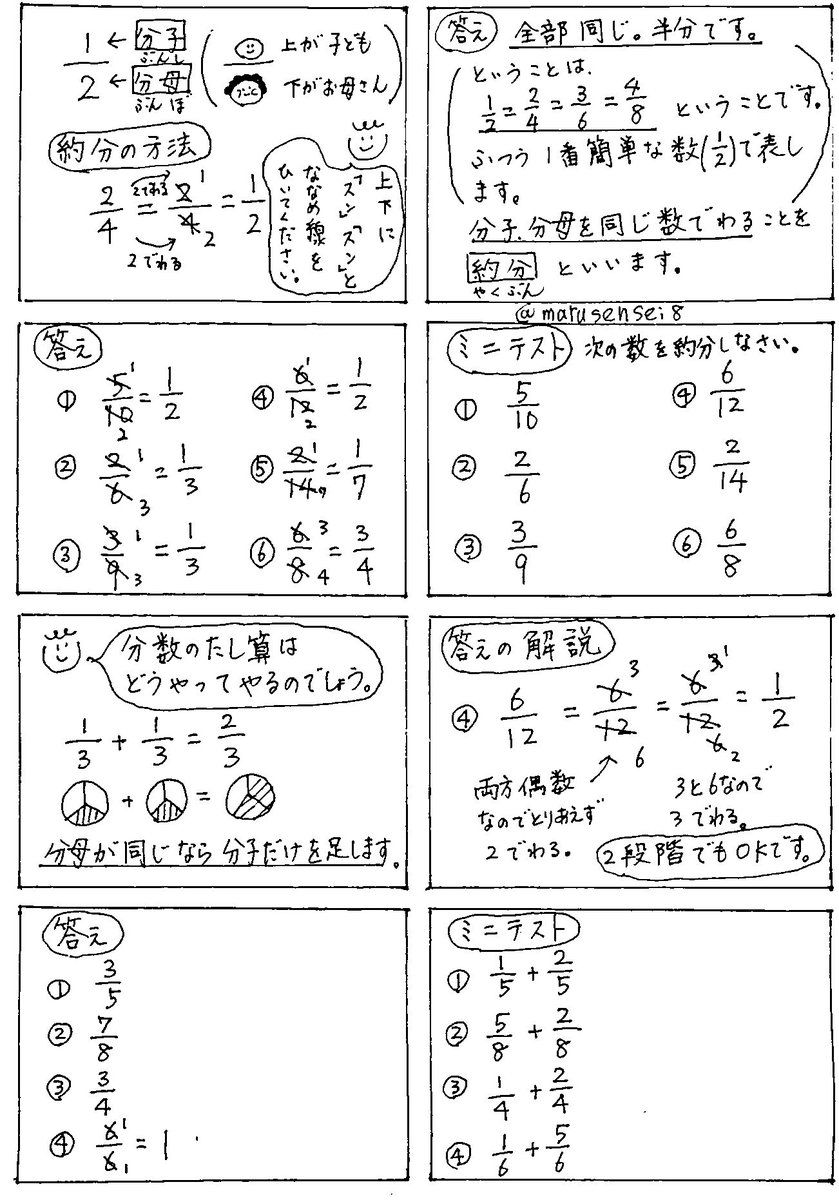 答え 全部同じ。半分です。
ということは、
1/2=2/4=3/6=4/8 ということです。
ふつう1番簡単な数(1/2)で表し
ます。
分子、分母を同じ数でわることを
約分 といいます。
やくぶん
@marusensei8
1/2 ←分子 上が子ども
ぶんし
←分母 下がお母さん
ぶんぼ
約分の方法
2でわる
2/4 = 2/4 1 2 = 1/2
2でわる
上下に
「ズン」「ズン」と
ななめ線を
ひいてください。
ミニテスト 次の数を約分しなさい。
① 5/10 ④ 6/12
② 2/6 ⑤ 2/14
③ 3/9 ⑥ 6/8
答え
① 5/10 1 2 = 1/2 ④ 6/12 1 2 = 1/2
② 2/6 1 3 = 1/3 ⑤ 2/14 1 7 = 1/7
③ 3/9 1 3 = 1/3 ⑥ 6/8 3 4 = 3/4
答えの解説
④ 6/12 = 6/12 3 6 = 6/12 3 1 6 2 = 1/2
両方偶数
なのでとりあえず
2でわる。
3と6なので
3でわる。
2段階でもOKです。
分数のたし算は
どうやってやるのでしょう。
1/3 + 1/3 = 2/3
+ =
分母が同じなら分子だけを足します。
ミニテスト
① 1/5 + 2/5
② 5/8 + 2/8
③ 1/4 + 2/4
④ 1/6 + 5/6
答え
① 3/5
② 7/8
③ 3/4
④ 6/6 1 1 = 1